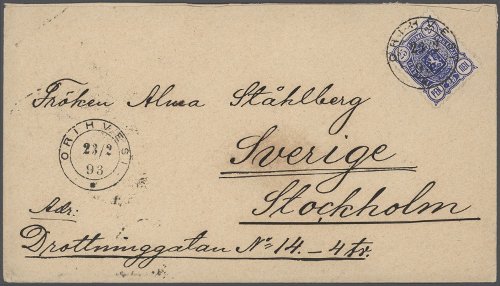 ORIHVE
23/2
Fröken Alma Ståhlberg
ORIHVESI
23/2
93
Sverige
Stockholm
Adr:
Drottninggatan No 14. – 4 tr.